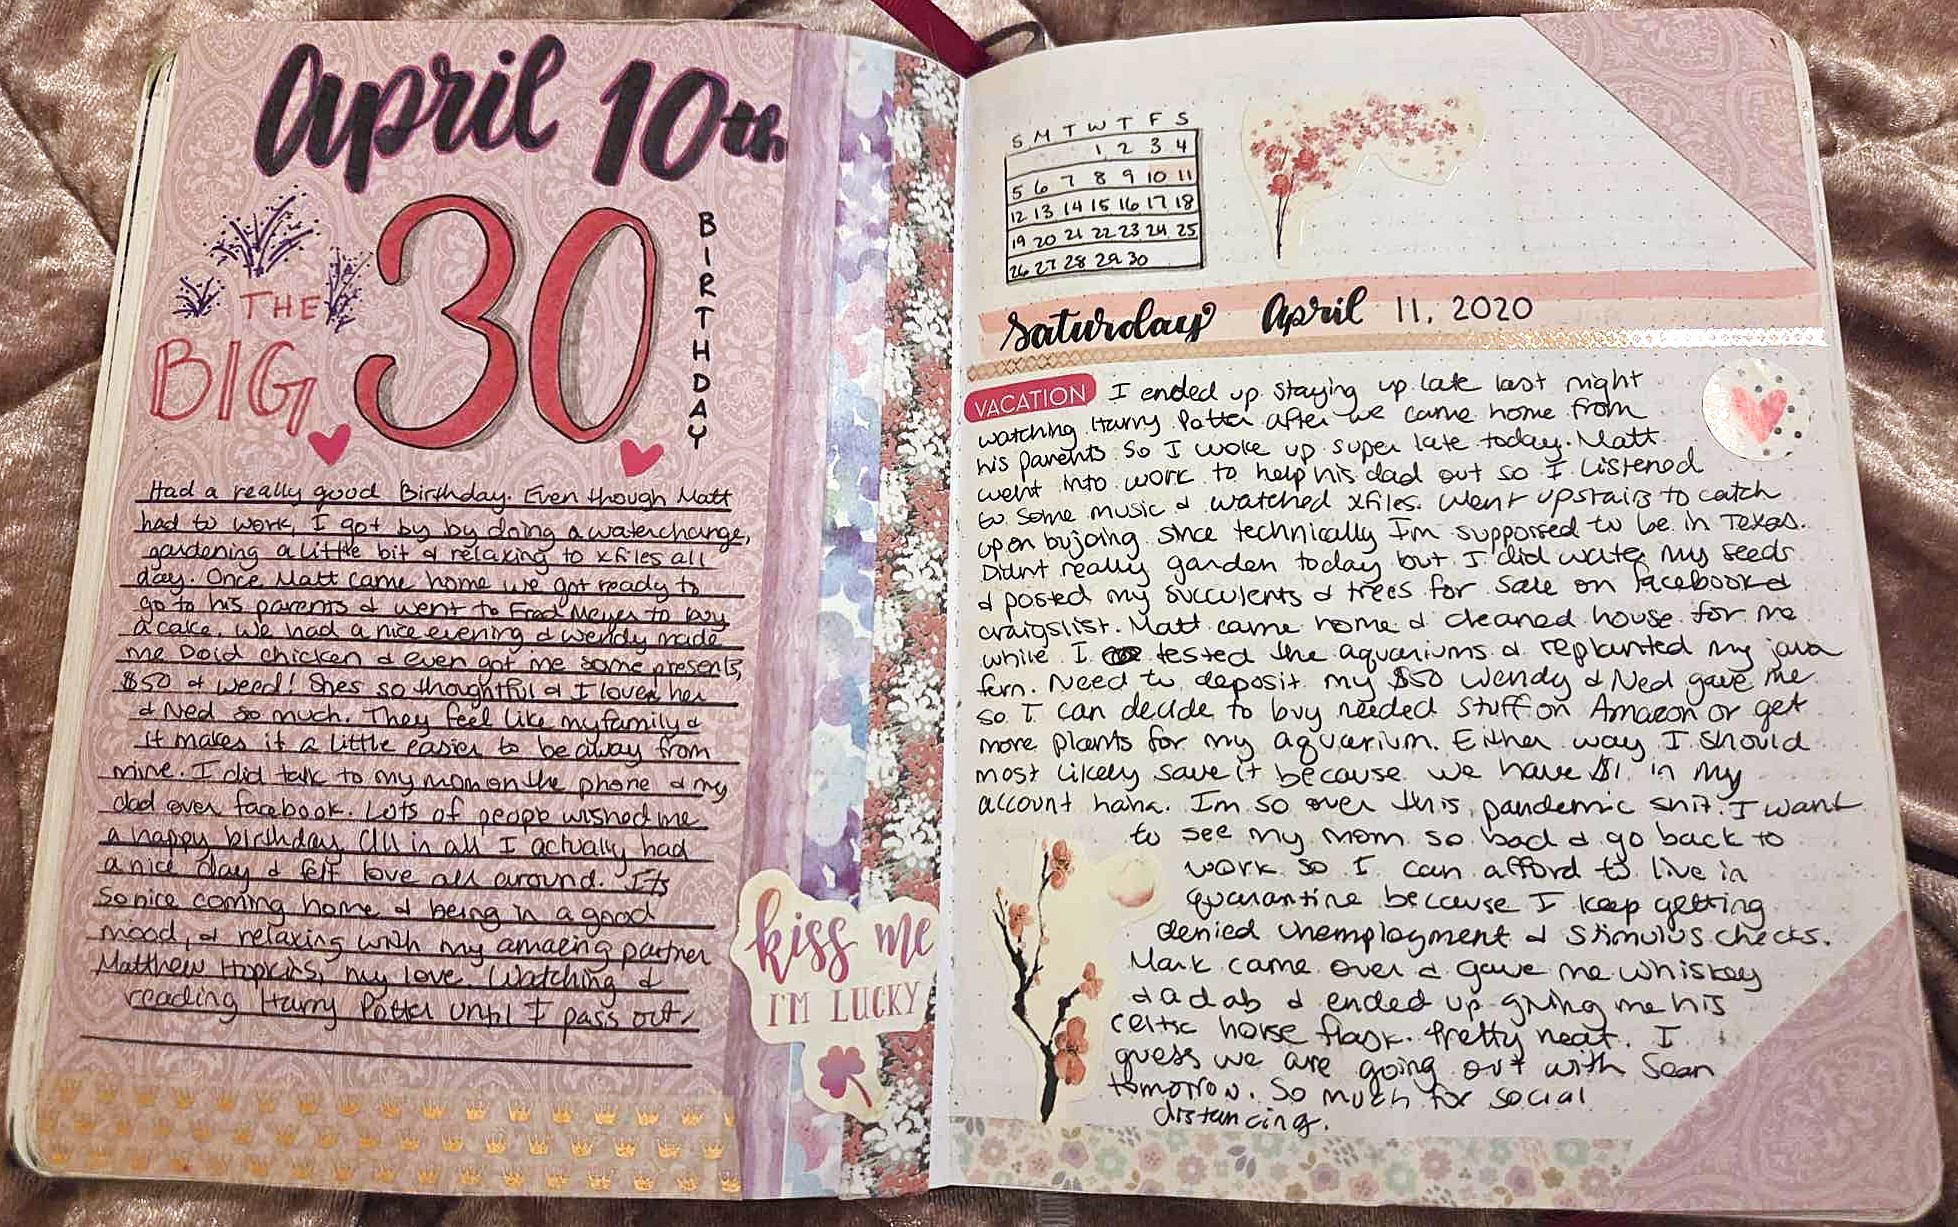 April 10th
THE
BIG
30
BIRTHDAY
Had a really good Birthday. Even though Matt
had to work, I got by by doing a waterchange,
gardening a little bit & relaxing to xfiles all
day. Once Matt came home we got ready to
go to his parents & went to Fred Meyer to buy
a cake. We had a nice evening & Wendy made
me Doid chicken & even got me some presents,
$50 & weed! Shes so thoughtful & I love her
& Ned so much. They feel like my family &
it makes it a little easier to be away from
mine. I did talk to my mom on the phone & my
dad over facebook. Lots of people wished me
a happy birthday. All in all I actually had
a nice day & felt love all around. Its
so nice coming home & being in a good
mood, & relaxing with my amazing partner
Matthew Hopkins, my love. Watching &
reading Harry Potter until I pass out.
kiss me
I'M LUCKY
S M T W T F S
1 2 3 4
5 6 7 8 9 10 11
12 13 14 15 16 17 18
19 20 21 22 23 24 25
26 27 28 29 30
Saturday April 11, 2020
VACATION I ended up staying up late last night
watching Harry Potter after we came home from
his parents. So I woke up super late today. Matt
went into work to help his dad out so I listened
to some music & watched xfiles. Went upstairs to catch
up on bujoing since technically I'm supposed to be in Texas.
Didnt really garden today but I did water my seeds
& posted my succulents & trees for sale on facebook &
craigslist. Matt came home & cleaned house for me
while I tested the aquariums & replanted my java
fern. Need to deposit my $50 Wendy & Ned gave me
so I can decide to buy needed stuff on Amazon or get
more plants for my aquarium. Either way I should
most likely save it because we have $1 in my
account haha. Im so over this pandemic shit. I want
to see my mom so bad & go back to
work so I can afford to live in
quarantine because I keep getting
denied unemployment & stimulus checks.
Mark came over & gave me whiskey
& a dab & ended up giving me his
celtic horse flask. Pretty neat. I
guess we are going out with Sean
tomorrow. So much for social
distancing.